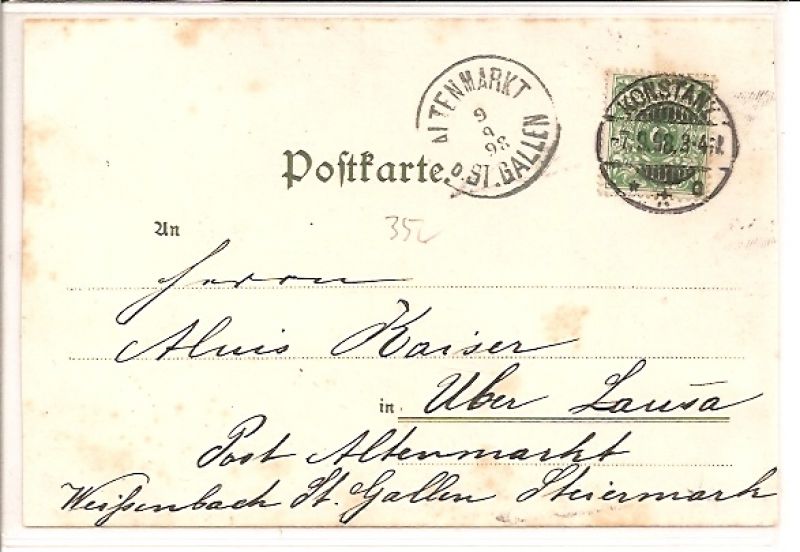 ALTENMARKT
9
9
98
b. ST. GALLEN
KONSTANZ
7.9.98.3-4N.
* * a
5
Postkarte.
352
An
Herrn
Aluis Kaiser
in Uber Lausa
Post Altenmarkt
Weißenbach St. Gallen Steiermark